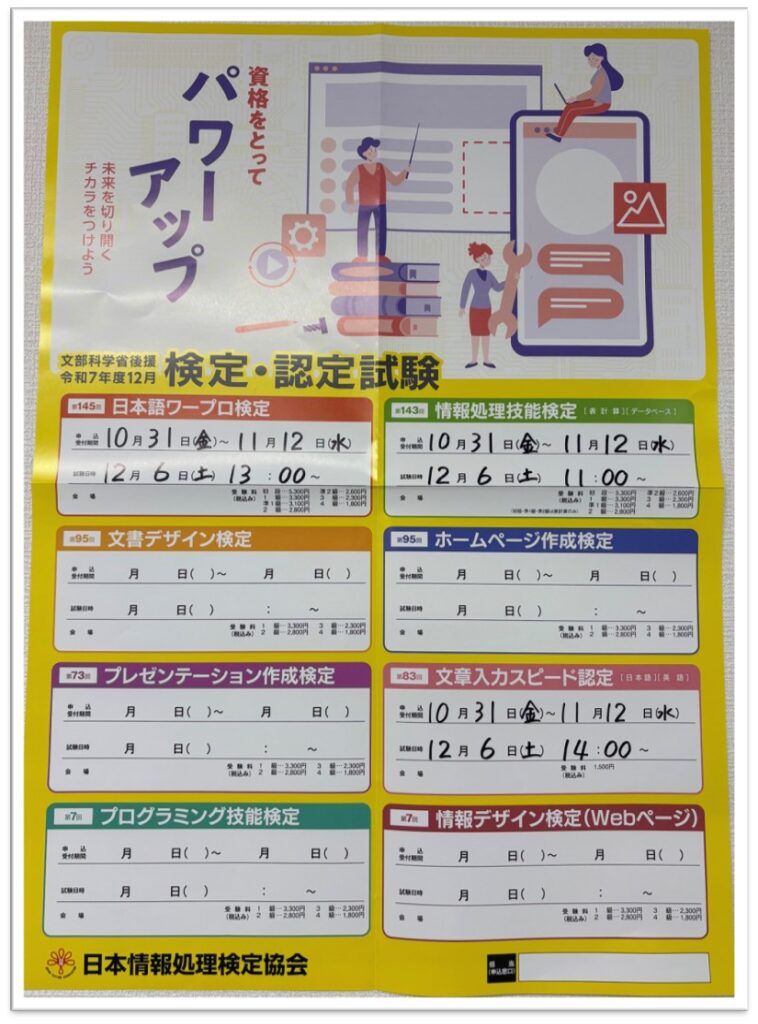 資格をとって
パワー
アップ
未来を切り開く
チカラをつけよう
文部科学省後援
令和7年度12月
検定・認定試験
第145回 日本語ワープロ検定
申込受付期間 10月31日(金)～11月12日(水)
試験日時 12月6日(土) 13:00～
会場
受験料(税込み) 初段…3,300円 準2級…2,600円
1級…3,300円 3級…2,300円
準1級…3,100円 4級…1,800円
2級…2,800円
第143回 情報処理技能検定 [表計算][データベース]
申込受付期間 10月31日(金)～11月12日(水)
試験日時 12月6日(土) 11:00～
会場
受験料(税込み) 初段…3,300円 準2級…2,600円
1級…3,300円 3級…2,300円
準1級…3,100円 4級…1,800円
2級…2,800円
第95回 文書デザイン検定
申込受付期間 月 日( )～ 月 日( )
試験日時 月 日( ) : ～
会場
受験料(税込み) 1級…3,300円 3級…2,300円
2級…2,800円 4級…1,800円
第95回 ホームページ作成検定
申込受付期間 月 日( )～ 月 日( )
試験日時 月 日( ) : ～
会場
受験料(税込み) 1級…3,300円 3級…2,300円
2級…2,800円 4級…1,800円
第73回 プレゼンテーション作成検定
申込受付期間 月 日( )～ 月 日( )
試験日時 月 日( ) : ～
会場
受験料(税込み) 1級…3,300円 3級…2,300円
2級…2,800円 4級…1,800円
第83回 文章入力スピード認定 [日本語][英語]
申込受付期間 10月31日(金)～11月12日(水)
試験日時 12月6日(土) 14:00～
会場
受験料(税込み) 1,500円
第7回 プログラミング技能検定
申込受付期間 月 日( )～ 月 日( )
試験日時 月 日( ) : ～
会場
受験料(税込み) 1級…3,300円 3級…2,300円
2級…2,800円 4級…1,800円
第7回 情報デザイン検定(Webページ)
申込受付期間 月 日( )～ 月 日( )
試験日時 月 日( ) : ～
会場
受験料(税込み) 1級…3,300円 3級…2,300円
2級…2,800円 4級…1,800円
日本情報処理検定協会
担当(申込窓口)